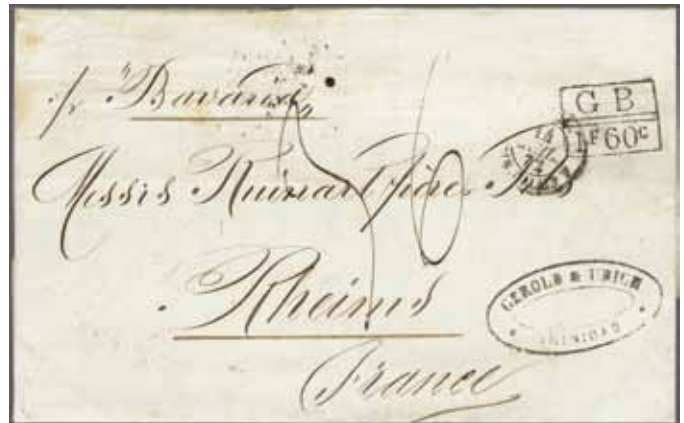 p. "Bavaria"
G B
1F60c
Messrs Ruinart Père & Fils
16
Rheims
GEROLD & URICH
TRINIDAD
France